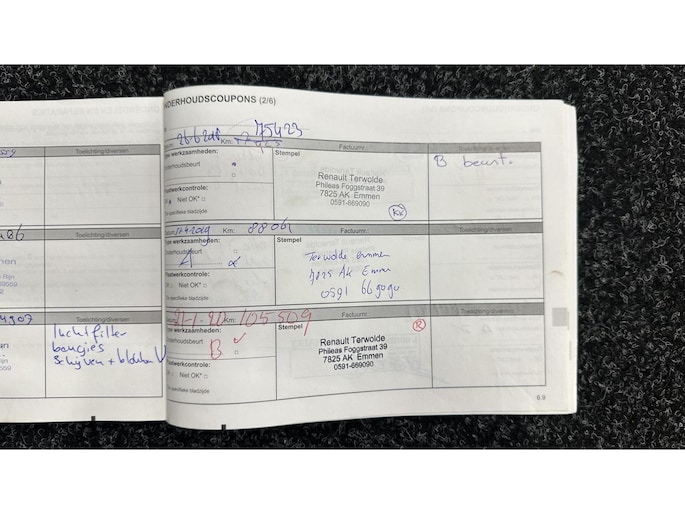 NDERHOUDSCOUPONS (2/6)
Toelichting/diversen
luchtfilter
bougies
schijven + blokken V
26-6-2018 Km: 75423
Factuurnr.:
Toelichting/diversen
werkzaamheden:
Stempel
B beurt.
derhoudsbeurt
Renault Terwolde
Phileas Foggstraat 39
7825 AK Emmen
0591-669090
KK
Niet OK*
Zie specifieke bladzijde
Toelichting/diversen
2019 Km: 88061
Factuurnr.:
Toelichting/diversen
werkzaamheden:
Stempel
A
Terwolde Emmen
7825 AK Emmen
0591 669090
Niet OK*
Zie specifieke bladzijde
Toelichting/diversen
21-1-20 Km: 105509
Factuurnr.:
Toelichting/diversen
werkzaamheden:
Stempel
B
Renault Terwolde
Phileas Foggstraat 39
7825 AK Emmen
0591-669090
Niet OK*
Zie specifieke bladzijde
6.9